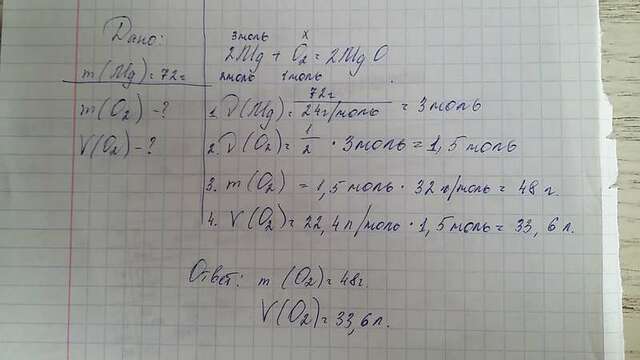 Дано:
m(Mg)=72г
m(O₂)-?
V(O₂)-?
3моль x
2Mg + O₂ = 2MgO
2моль 1моль
1. ν(Mg)= 72г / 24г/моль = 3моль
2. ν(O₂)= 1/2 · 3моль = 1,5моль
3. m(O₂) = 1,5моль · 32г/моль = 48г.
4. V(O₂)=22,4л/моль · 1,5моль = 33,6л.
Ответ: m(O₂)=48г
V(O₂)=33,6л.